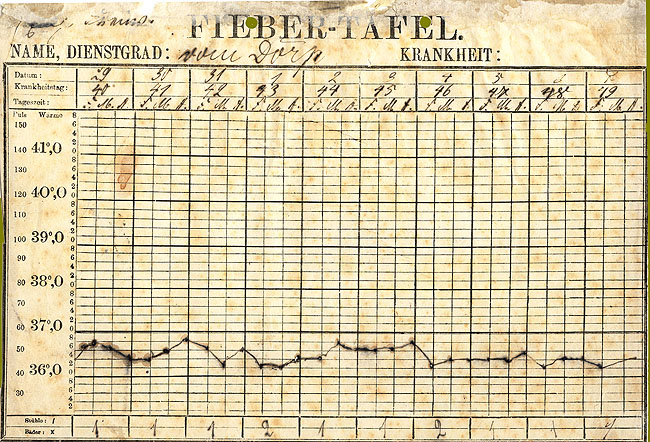 FIEBER-TAFEL.
NAME, DIENSTGRAD: vom Dorp KRANKHEIT:
Datum: 29 30 31 1 2 3 4 5 6 7
Krankheitstag: 40 41 42 43 44 45 46 47 48 49
Tageszeit: F. M. A. F. M. A. F. M. A. F. M. A. F. M. A. F. M. A. F. M. A. F. M. A. F. M. A. F. M. A.
Puls Wärme 8
150 6
4
140 41°,0 2
0
130 8
6
4
120 40°,0 2
0
110 8
6
4
100 39°,0 2
0
90 8
6
4
80 38°,0 2
0
70 8
6
4
60 37°,0 2
0
50 8
6
4
40 36°,0 2
0
30 8
6
4
2
Stühle: /
Bäder: X 1 1 1 2 1 1 2 1 1